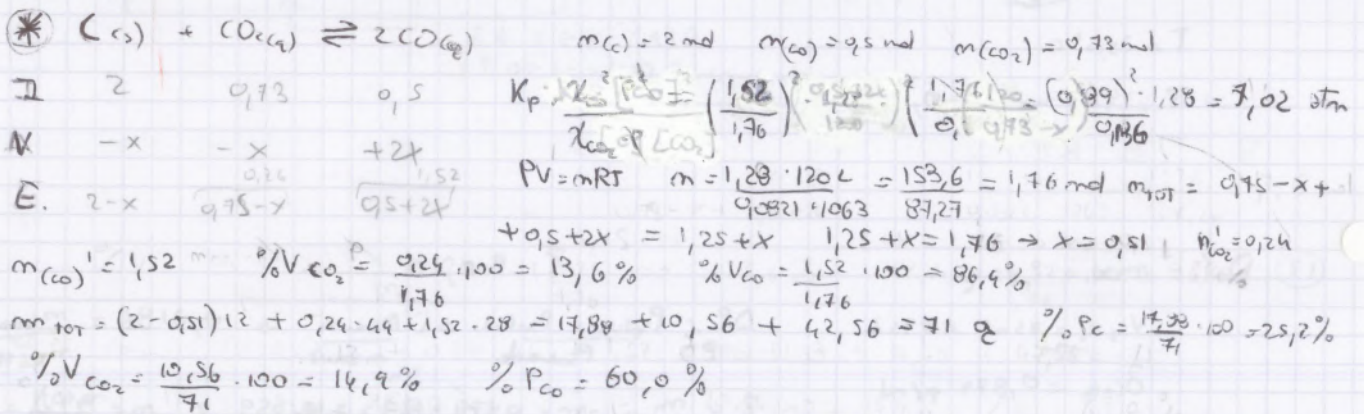 * C(s) + CO2(g) ⇌ 2CO(g) n(C) = 2 mol n(CO) = 0,5 mol n(CO2) = 0,73 mol
I 2 0,73 0,5
N. -x -x +2x
Kp = (1,52/1,76)² = (0,89)² · 1,28 / 0,136 = 7,02 atm
0,24 1,52
E. 2-x 0,75-x 0,5+2x
PV = nRT n = 1,28 · 120 L / 0,0821 · 1063 = 153,6 / 87,27 = 1,76 mol nTOT = 0,75 - x +
+ 0,5 + 2x = 1,25 + x 1,25 + x = 1,76 → x = 0,51 n'CO2 = 0,24
n(CO)' = 1,52 %V CO2 = 0,24/1,76 · 100 = 13,6% %V CO = 1,52/1,76 · 100 = 86,4%
m TOT = (2-0,51)12 + 0,24·44 + 1,52·28 = 17,88 + 10,56 + 42,56 = 71 g %Pc = 17,88/71 · 100 = 25,2%
%V CO2 = 10,56/71 · 100 = 14,9% %P CO = 60,0%